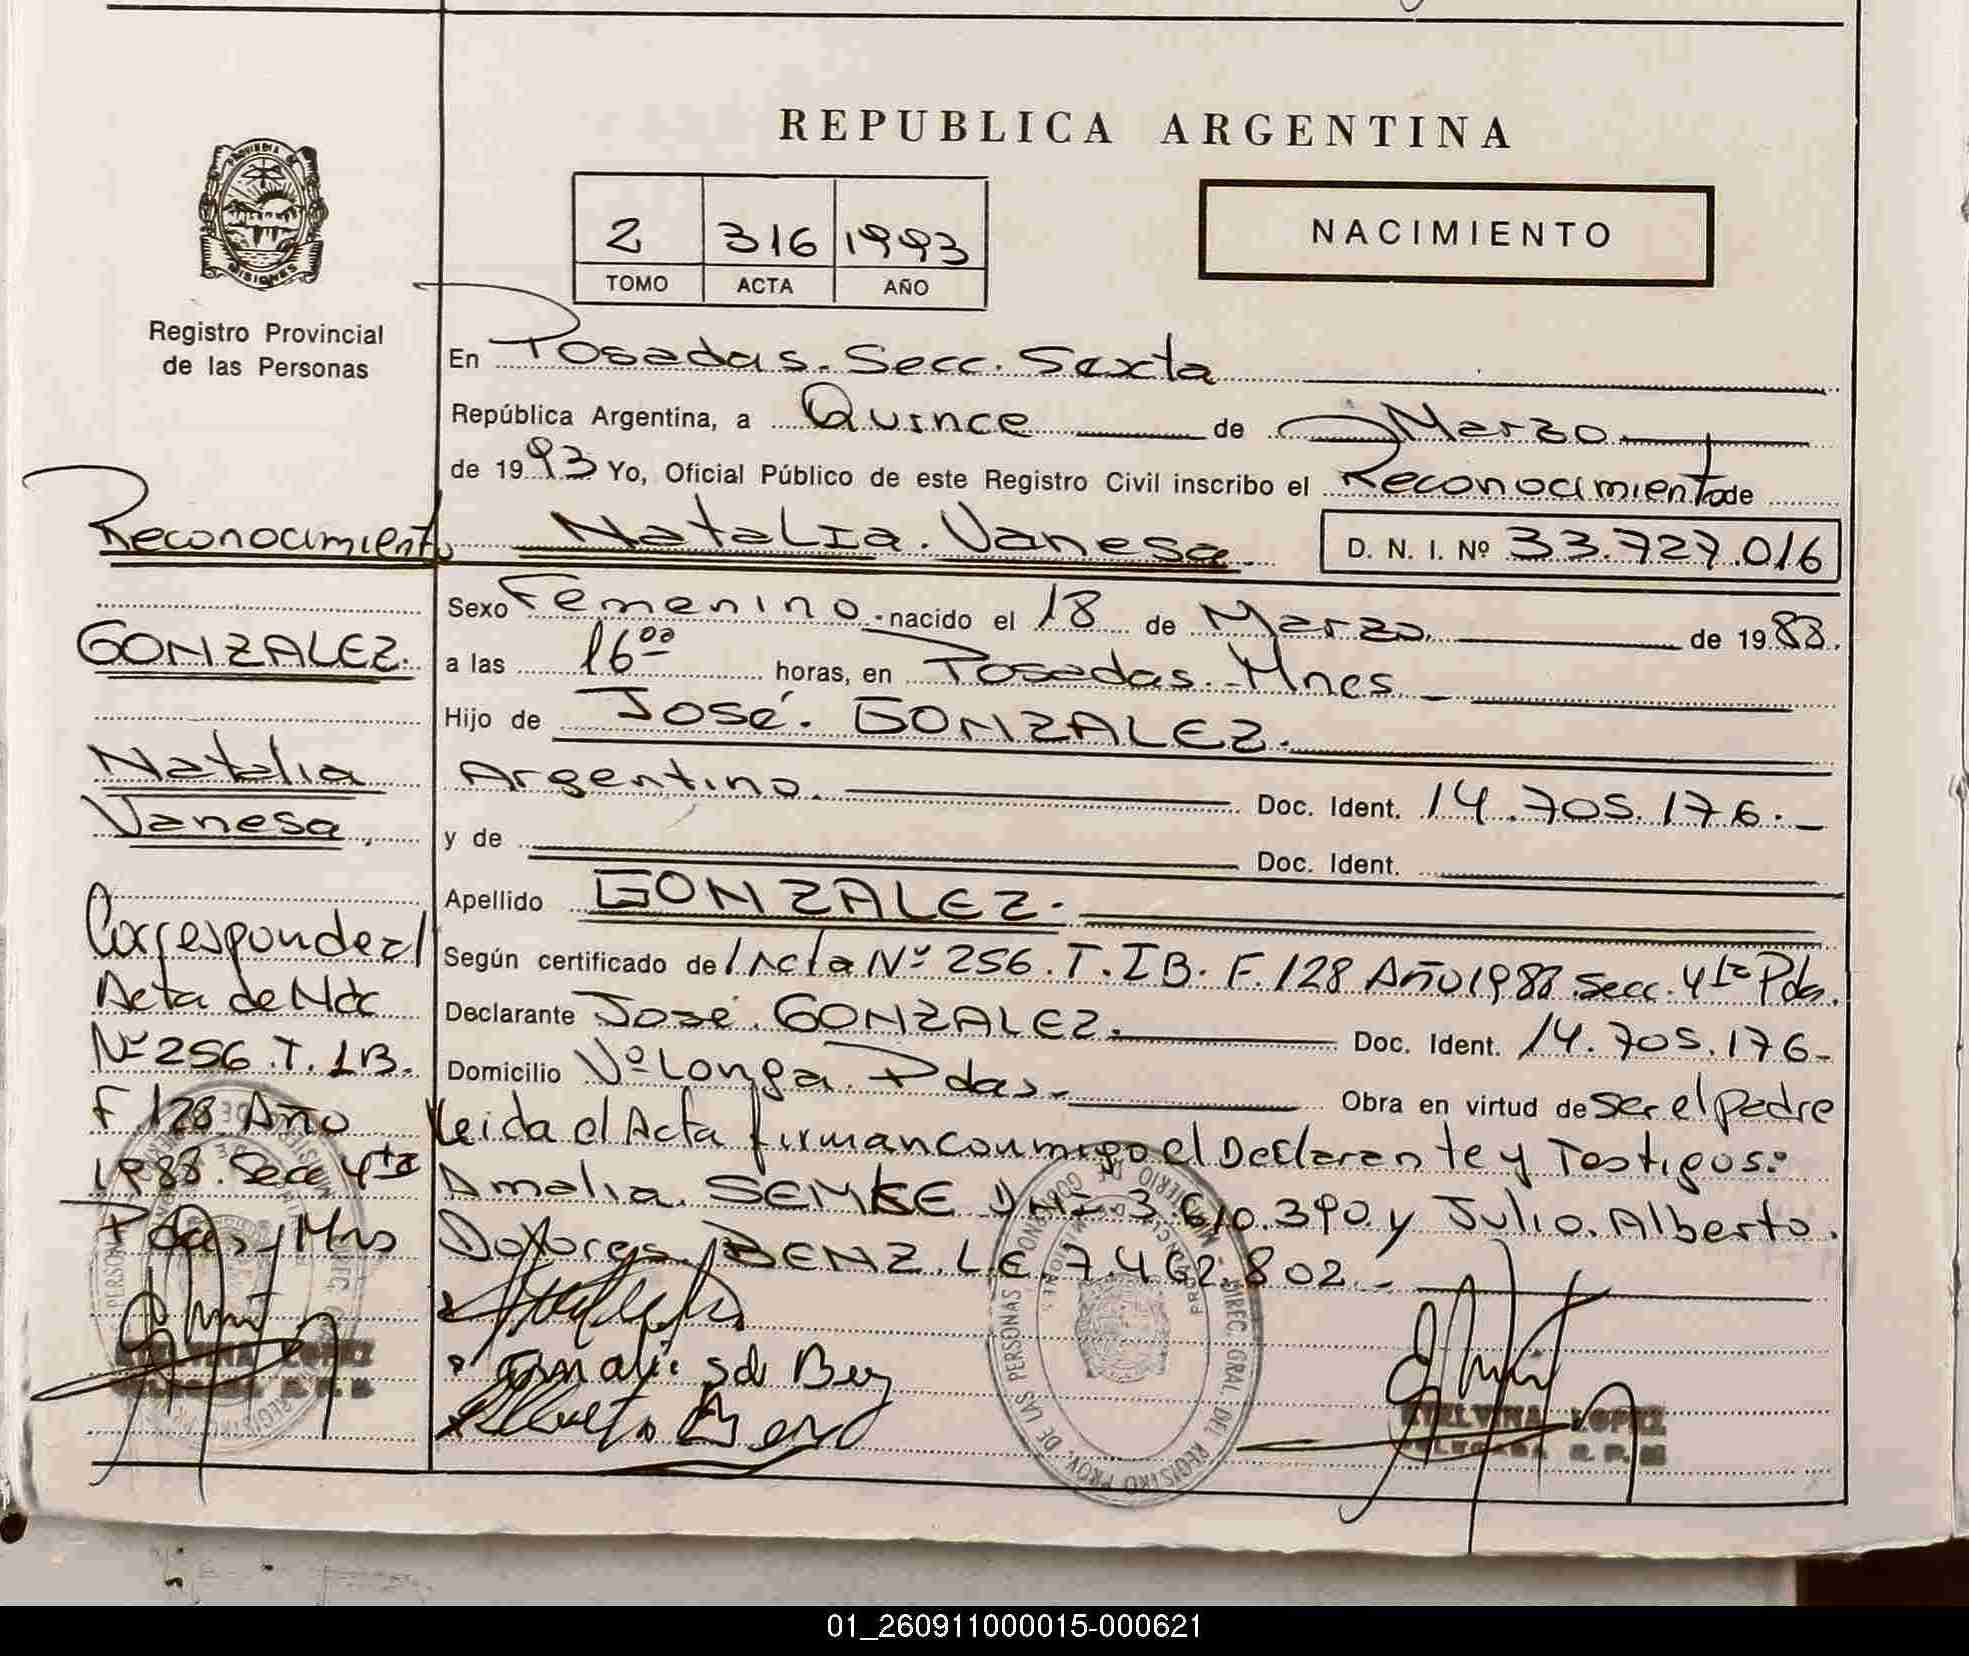 REPUBLICA ARGENTINA
2 316 1993
TOMO ACTA AÑO
NACIMIENTO
PROVINCIA DE
MISIONES
Registro Provincial
de las Personas
En Posadas. Secc. Sexta
República Argentina, a Quince de Marzo
de 1993 Yo, Oficial Público de este Registro Civil inscribo el Reconocimiento de
Natalia. Vanesa. D. N. I. Nº 33.727.016
Sexo Femenino. nacido el 18 de Marzo de 1988.
a las 16⁰⁰ horas, en Posadas. Mnes
Hijo de José. GONZALEZ.
Argentino. Doc. Ident. 14.705.176.
y de Doc. Ident.
Apellido GONZALEZ.
Según certificado de l Acta Nº 256. T. I B. F. 128 Año 1988. Secc. 4ta Pdas.
Declarante José. GONZALEZ. Doc. Ident. 14.705.176-
Domicilio Vº Longa. Pdas. Obra en virtud de ser el padre
Leida el Acta firman conmigo el Declarante y Testigos:
Amalia. SEMKE DNI 3.610.390. y Julio. Alberto.
Dolores BENZ. L.E. 7.462.802.-
Reconocimiento
GONZALEZ.
Natalia
Vanesa.
Corresponde al
Acta de Nac
Nº 256. T. 1B.
F. 128. Año
1988. Secc 4ta
Pdas, Mns
ETELVINA LOPEZ
DELEGADA R. P. M
ETELVINA LOPEZ
DELEGADA R. P. M
DIREC. GRAL. DEL REGISTRO PROV. DE LAS PERSONAS
01_260911000015-000621